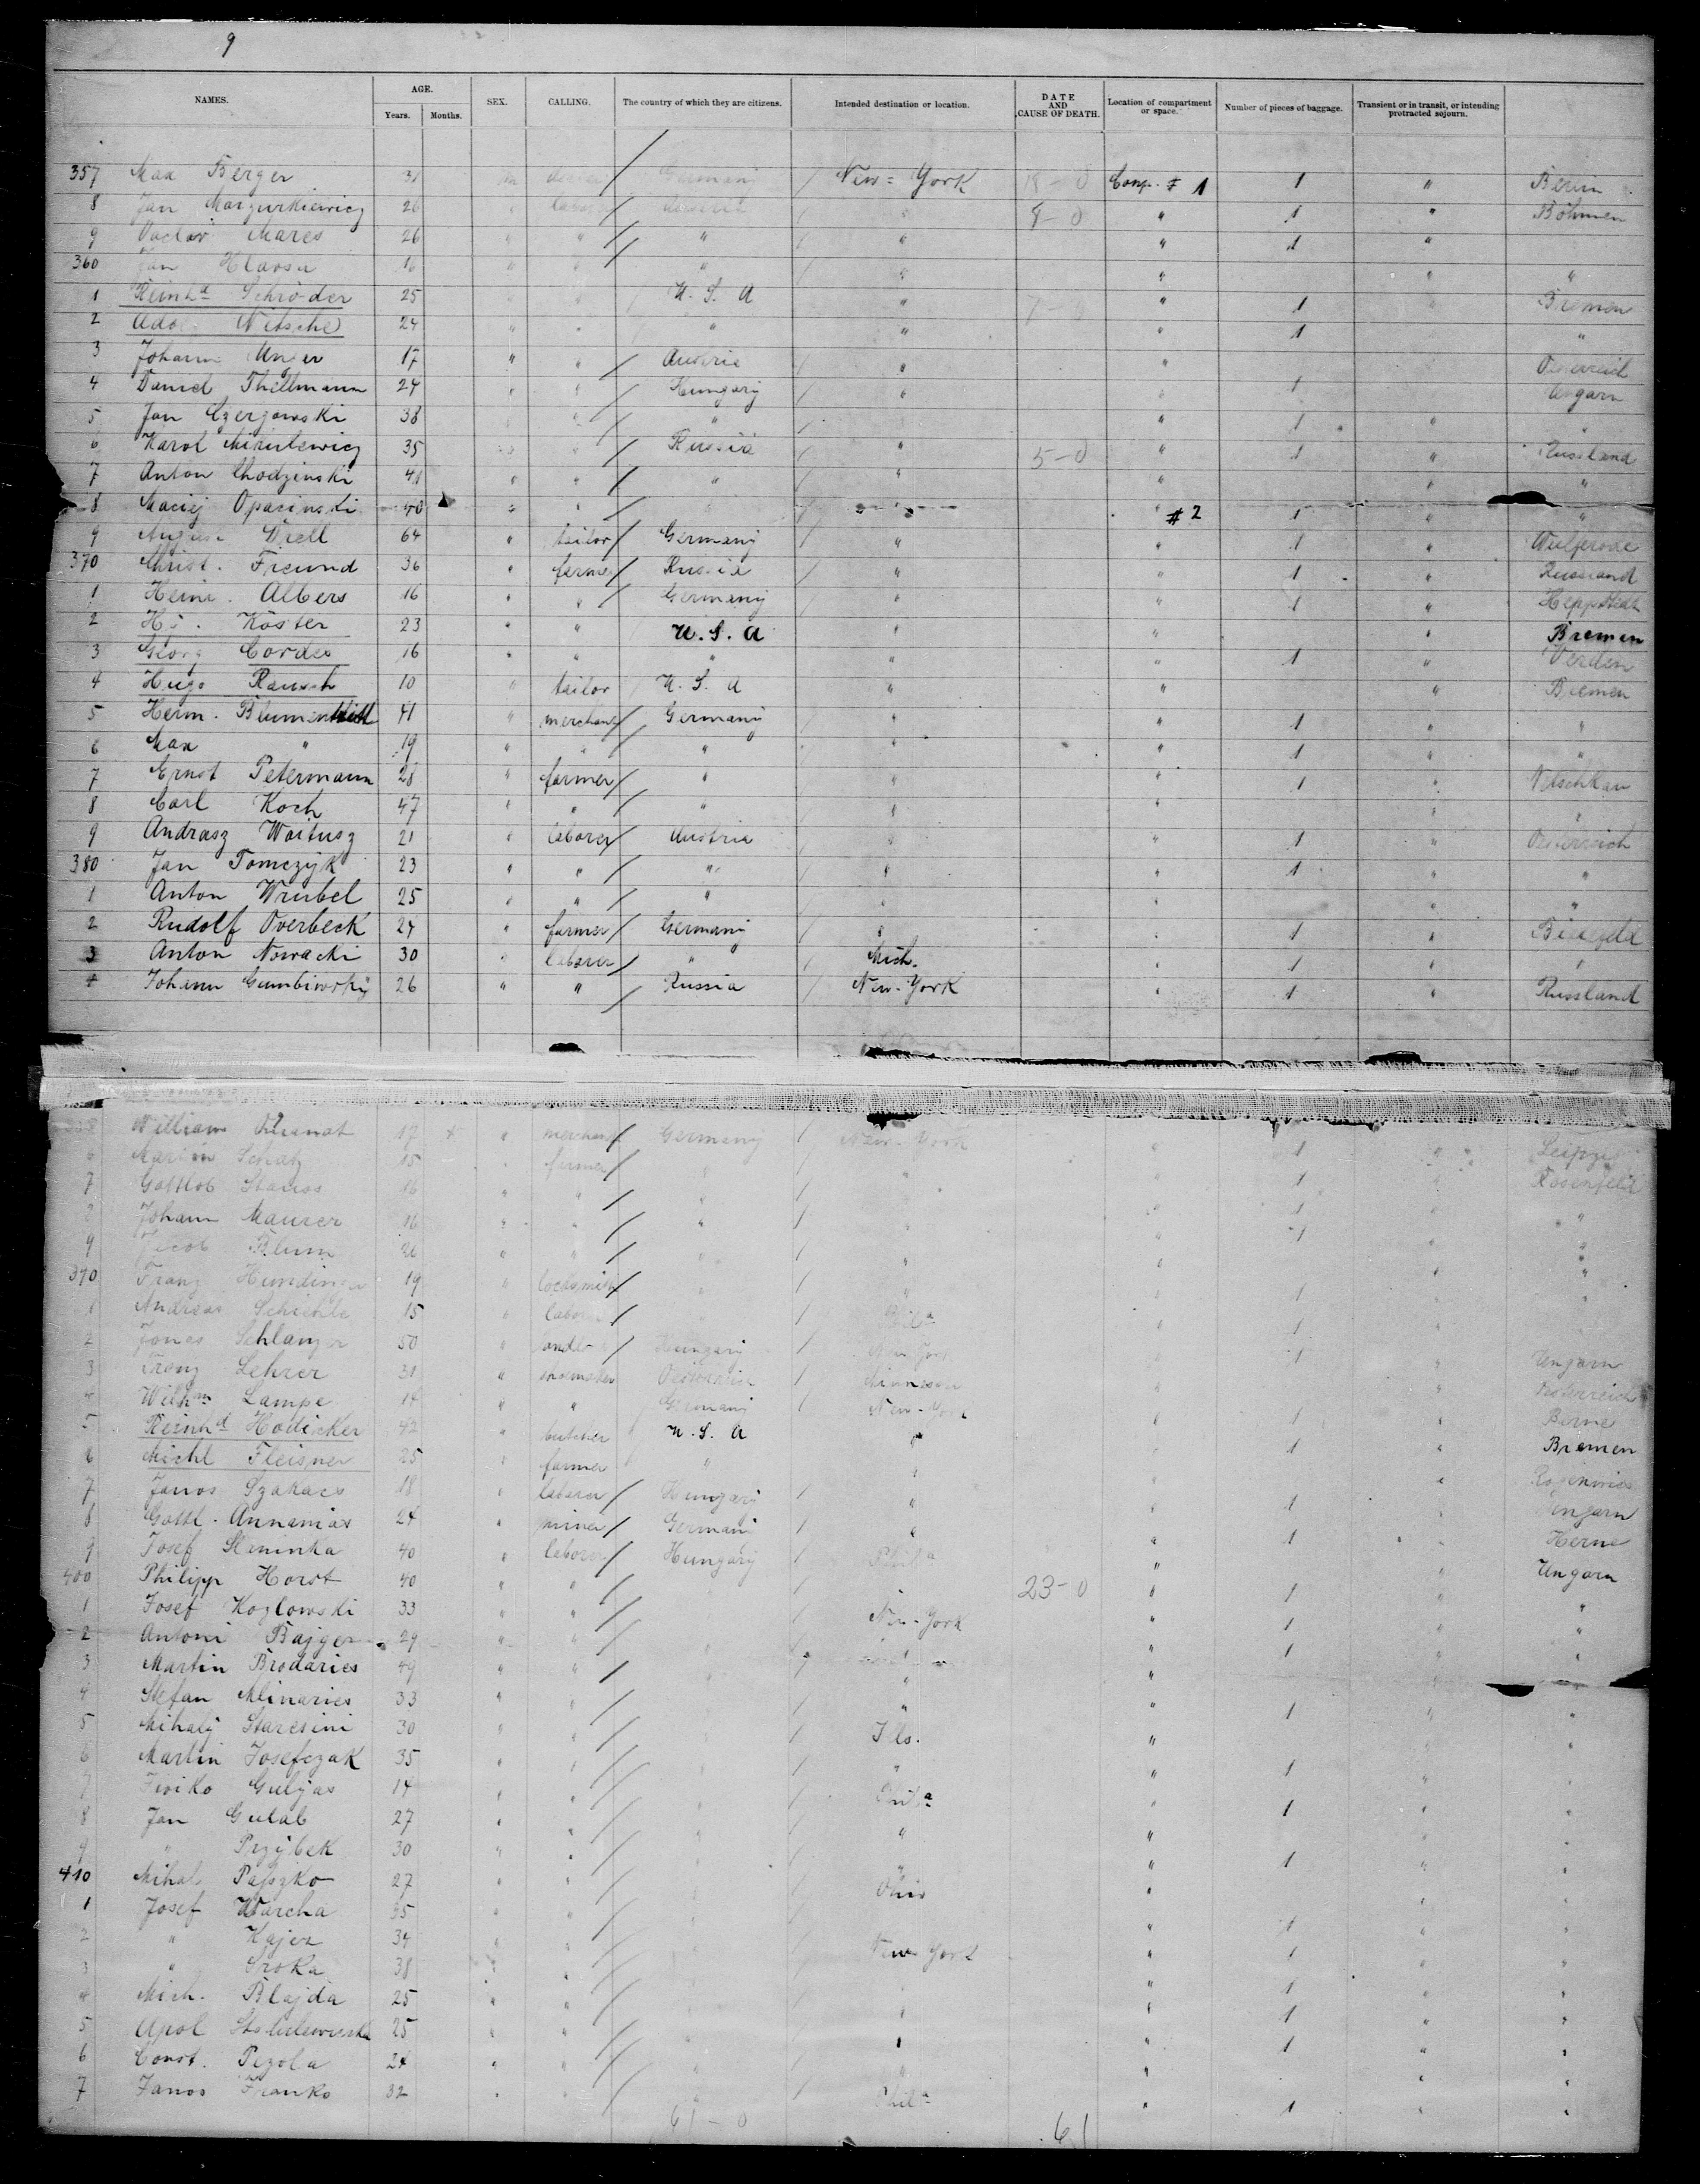 9
NAMES. AGE. SEX. CALLING. The country of which they are citizens. Intended destination or location. DATE AND CAUSE OF DEATH. Location of compartment or space. Number of pieces of baggage. Transient or in transit, or intending protracted sojourn.
Years. Months.
357 Max Berger 31 m Germany New-York 18-0 Comp. # 1 1 " Berlin
8 Jan 26 " " 8-0 " 1 " Böhmen
9 Vaclav Mares 26 " " " " " 1 "
360 Jan Hlavsa 16 " " " " " " "
1 Reinhd Schröder 25 " " U. S. A " " 1 Bremen
2 Nitsche 24 " " " " " 1 "
3 Johann Unger 17 " " Austria " " Oesterreich
4 Daniel Thillmann 24 " " Hungary " " 1 Ungarn
5 Jan 38 " " " " " 1 " "
6 Karol 35 " " Russia " 5-0 " 1 " Russland
7 Anton Chodzinski 41 " " " " " " "
8 Maciej Opasinski 40 " " " " " # 2 1 " "
9 64 " tailor Germany " " 1 " Wülferode
370 Christ. Freund 36 " farmer Russia " " 1 " Russland
1 Heinr. Albers 16 " " Germany " " 1 "
2 Köster 23 " " U. S. A " " " Bremen
3 Georg Cordes 16 " " " " " 1 " Verden
4 Hugo Rausch 10 " tailor U. S. A " " " Bremen
5 Herm. 41 " merchant Germany " " 1 " "
6 Max " 19 " " " " " 1 " "
7 Ernst Petermann 28 " farmer " " " 1 "
8 Carl Koch 47 " " " " " " "
9 Andrasz Woitusz 21 " laborer Austria " " 1 " Oesterreich
380 Jan Tomczyk 23 " " " " " 1 " "
1 Anton Wrubel 25 " " " " " " "
2 Rudolf Overbeck 24 " farmer Germany " " 1 " Bielefeld
3 Anton Nowacki 30 " laborer " Mich. " 1 " "
4 Johann 26 " " Russia New-York " 1 " Russland
William 17 " merchant Germany New-York " 1 " Leipzig
6 Schatz 15 " farmer " " " 1 " Rosenfeld
7 Gottlob Stauss 16 " " " " " 1 " "
8 Johann Maurer 16 " " " " " 1 " "
9 Jacob Blum 26 " " " " " " "
390 Franz 19 " locksmith " " " 1 " "
1 Andreas Schichle 15 " laborer " Phila " 1 " "
2 Jonas Schlanger 50 " Hungary New-York " 1 " Ungarn
3 Franz Lehrer 31 " shoemaker " " Oesterreich
4 Wilhm Lampe 14 " " Germany New-York " 1 " Berne
5 Reinhd Hodicker 42 " butcher U. S. A " " 1 " Bremen
6 Michl Fleisner 25 " farmer " " " "
7 Janos Szakacs 18 " laborer Hungary " " 1 " Ungarn
8 Gottl. Annanias 24 " miner Germany " " 1 " Herne
9 Josef 40 " laborer Hungary Phila " " Ungarn
400 Philipp Horst 40 " " " " 23-0 " 1 " "
1 Josef Kozlowski 33 " " " New-York " 1 " "
2 Antoni Bajger 29 " " " " " 1 " "
3 Martin Brodaries 49 " " " " " "
4 Stefan Mlinaries 33 " " " " " 1 " "
5 Mihaly Staresini 30 " " " Ils. " " "
6 Martin Josefczak 35 " " " " " 1 " "
7 Gulyas 14 " " " Phila " 1 " "
8 Jan Gulab 27 " " " " " "
9 " Przybek 30 " " " " " 1 " "
410 Mihal Papszko 27 " " " Ohio " "
1 Josef Warcha 35 " " " " " 1 " "
2 " Kajer 34 " " " New York " 1 " "
3 " Sroka 38 " " " " " 1 " "
4 Mich. Blajda 25 " " " " " 1 " "
5 Apol 25 " " " " " 1 " "
6 Const. Pizola 24 " " " " " " "
7 Janos Franko 32 " " " Phila " 1 " "
61-0 61